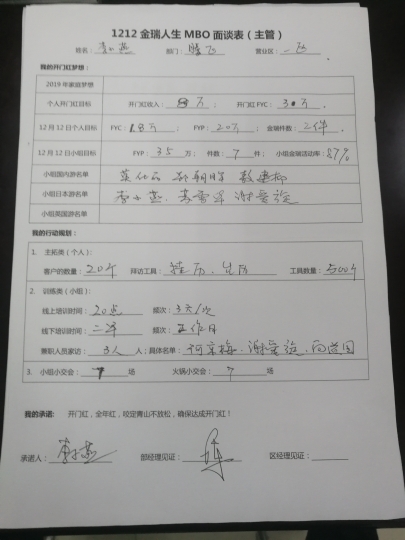 1212 金瑞人生 MBO 面谈表（主管）
姓名： 部门： 营业区：一区
我的开门红梦想：
2019 年家庭梦想
个人开门红目标 开门红收入： 万 ； 开门红 FYC：3 万 .
12 月 12 日个人目标 FYC：1.8万 ； FYP：20万 ； 金瑞件数：2件 .
12 月 12 日小组目标 FYP：35 万； 件数：7 件； 小组金瑞活动率：87%
小组国内游名单
小组日本游名单
小组英国游名单
我的行动规划：
1. 主拓类（个人）：
客户的数量：20个 拜访工具：挂历、生历 工具数量：500个
2. 训练类（小组）：
线上培训时间：20点 频次：3天/次
线下培训时间：二早 频次：工作日
兼职人员家访：3人 人；具体名单：
3. 小组小交会：7 场 火锅小交会：7 场
我的承诺： 开门红，全年红，咬定青山不放松，确保达成开门红！
承诺人： 部经理见证： 区经理见证：